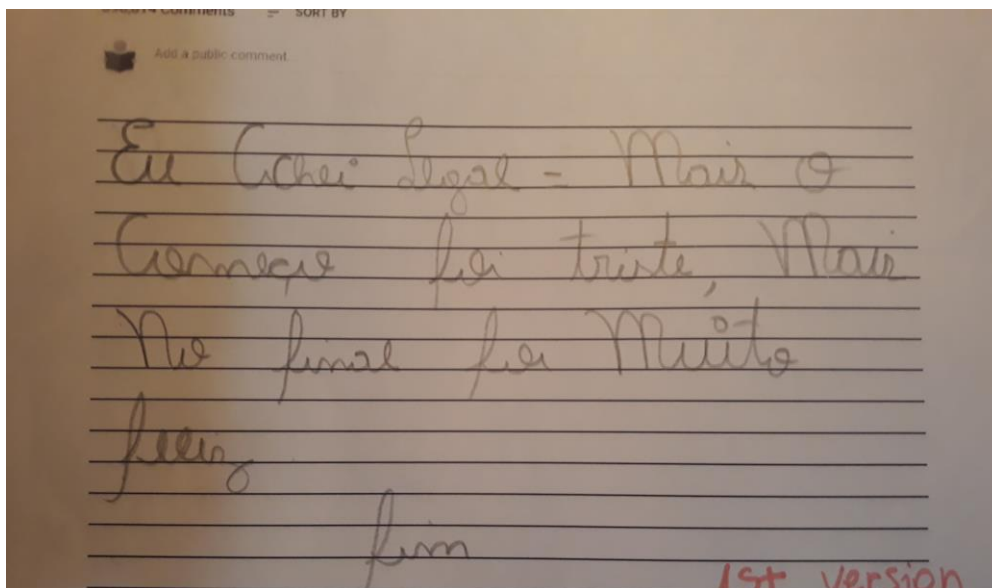 Comments SORT BY
Add a public comment.
Eu Achei Legal - Mais o
Começo foi triste, Mais
No final foi Muito
feliz
fim
1st version